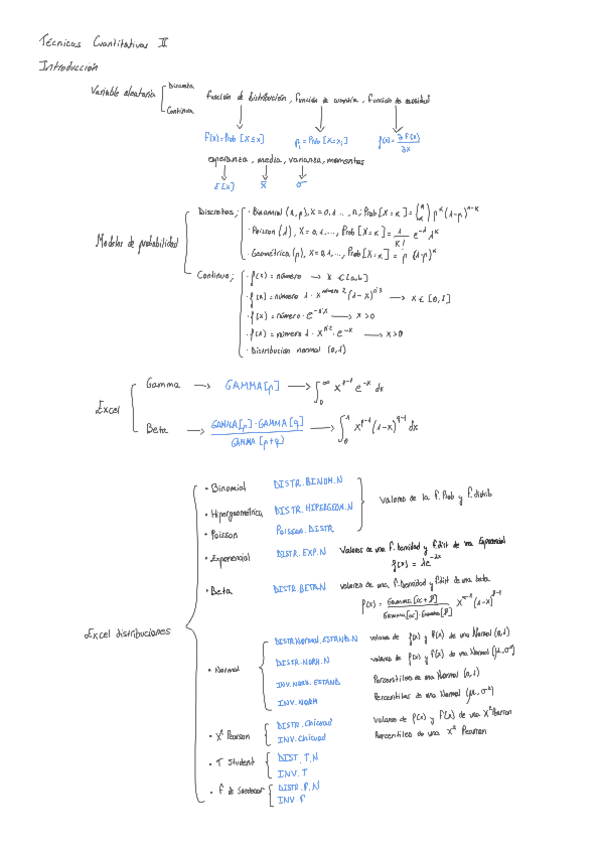 Técnicas Cuantitativas II
Introducción
Variable aleatoria
Discreta
Continua
función de distribución, función de cuantía, función de densidad
F(x)=Prob [X≤x]
pᵢ = Prob [X=xᵢ]
f(x)= ∂F(x)/∂x
esperanza, media, varianza, momentos
E[x]
x̄
σ
Modelos de probabilidad
Discretos;
· Binomial (n,p), X=0,1...,n; Prob [X=k] = (n k) p^k (1-p)^n-k
· Poisson (λ), X=0,1,..., Prob [X=k] = 1/k! e^-λ λ^k
· Geométrica (p), X=0,1,..., Prob [X=k] = p (1-p)^k
Continuo;
· f(x) = número → x ∈ [a,b]
· f(x) = número 1 · x^número 2 (1-x)^nº3 → x ∈ [0,1]
· f(x) = número · e^-nº x → x>0
· f(x) = número 1 · x^nº2 · e^-x → x>0
· Distribucion normal (0,1)
Excel
Gamma → GAMMA[p] → ∫₀^∞ x^p-1 e^-x dx
Beta → GAMMA[p]·GAMMA[q] / GAMMA[p+q] → ∫₀^1 x^p-1 (1-x)^q-1 dx
Excel distribuciones
· Binomial DISTR.BINOM.N
· Hipergeométrica DISTR.HIPERGEOM.N
· Poisson Poisson.DISTR
valores de la f.Prob y f.distrib
· Exponencial DISTR.EXP.N Valores de una f.Densidad y f.dist de una Exponencial
f(x) = λe^-λx
· Beta DISTR.BETA.N valores de una f.Densidad y f.dist de una beta
f(x) = GAMMA[α+β] / GAMMA[α]·GAMMA[β] x^α-1 (1-x)^β-1
· Normal
DISTR.Normal.ESTAND.N valores de f(x) y F(x) de una Normal (0,1)
DISTR.NORM.N valores de f(x) y F(x) de una Normal (μ,σ²)
INV.NORM.ESTAND Percentiles de una Normal (0,1)
INV.NORM Percentiles de una Normal (μ,σ²)
· X² Pearson
DISTR.Chicuad valores de f(x) y F(x) de una X² Pearson
INV.Chicuad Percentiles de una X² Pearson
· T Student
DIST.T.N
INV.T
· F de Snedecor
DISTR.F.N
INV F